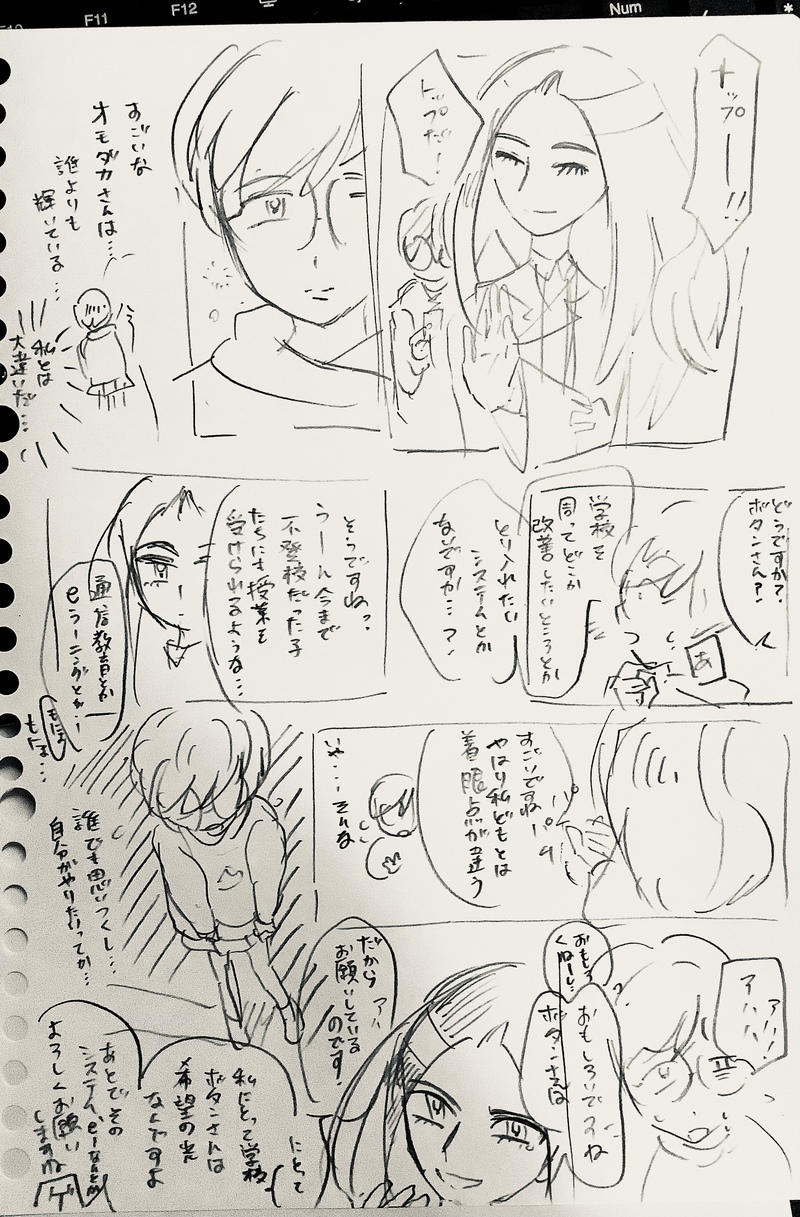 F11
F12
Num
トップー!!
トップだ!
すごいな
オモダカさんは…
誰よりも
輝いている…
私とは
大違いだ…
どうですか?
ボタンさん?
学校を
周ってどこか
改善したいところとか
とり入れたい
システムとか
ないですか…?
あ
そうですね?
うーん今まで
不登校だった子
たちにも授業を
受けられるような…
通信教育とか
eラーニングとか…
もにょ
もにょ…
すごいですね
やはり私どもとは
着眼点が違う
パ
チ
パ
いや…そんな
誰でも思いつくし…
自分がやりたいってか…
アハハ
アハハハ!
おもしろいですね
ボタンさんは
おもろ
くねーし…
だから
お願いしている
のです!
アハハ
にとって
私にとって学校
ボタンさんは
希望の光
なんですよ
あとでその
システム
よろしくお願い
しますね
ゲ